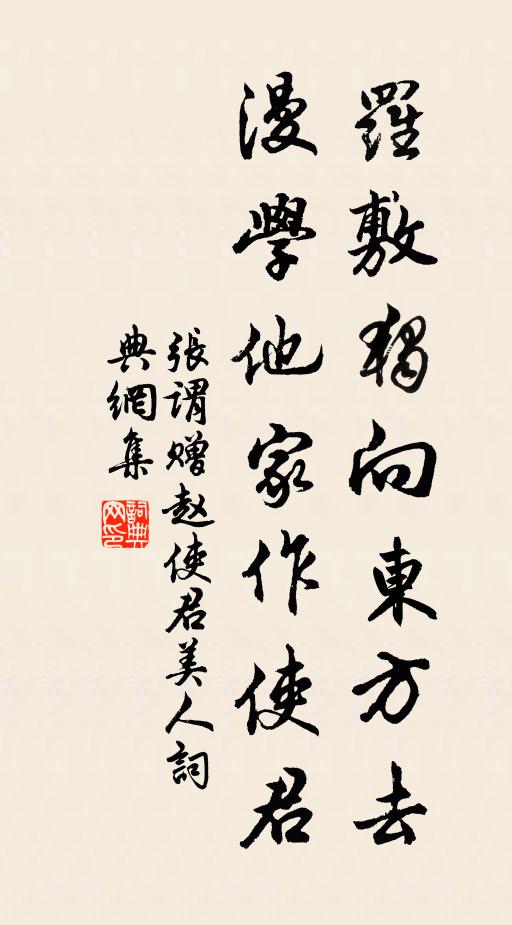 羅敷獨向東方去
漫學他家作使君
張謂赠赵使君美人詞
典網集
詞典网印